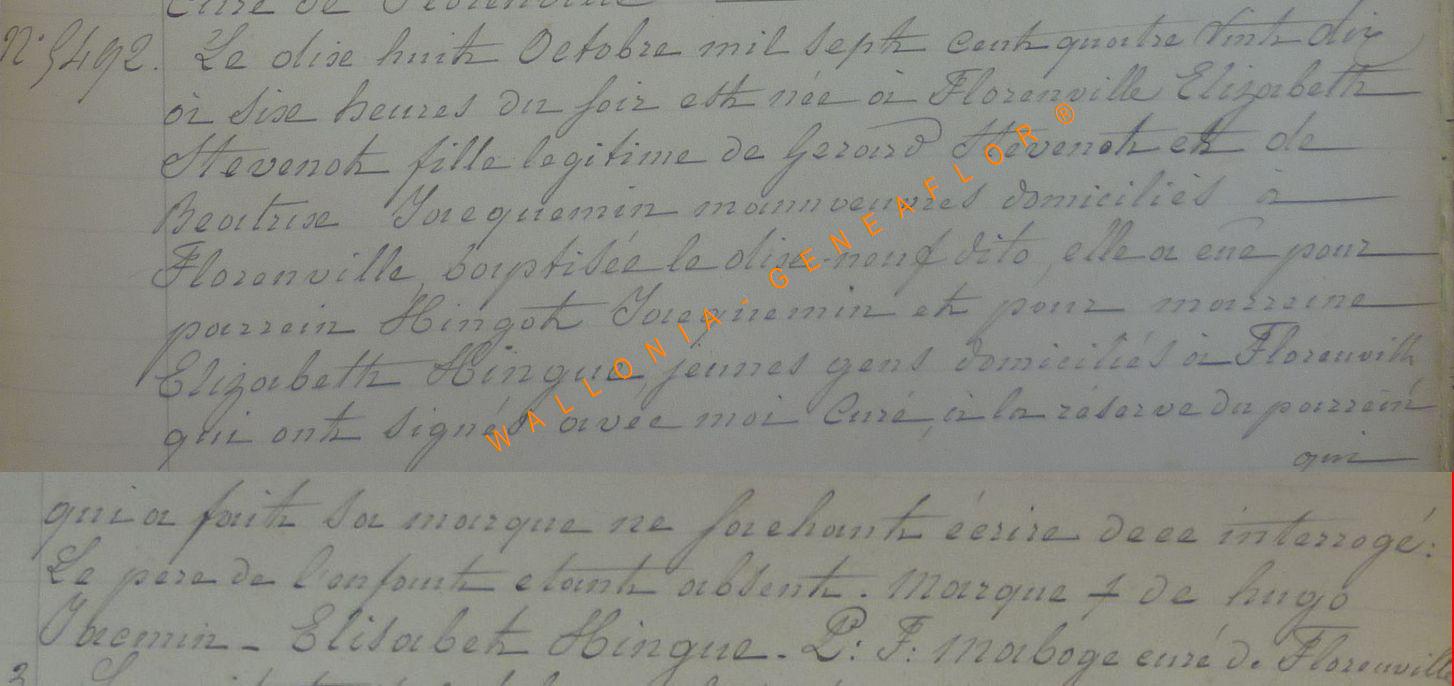 Curé de Florenville
N° 5492. Le dixe huit Octobre mil sept cent quatre Vint dix
à sixe heures du soir est née à Florenville Elizabeth
Stevenot fille legitime de Gerard Stevenot et de
Beatrixe Jacquemin mannveuvres domiciliés à
Florenville, baptisée le dixe-neuf dito, elle a eûe pour
parrein Hingot Jacquemin et pour marreine
Elizabeth Hingue, jeunes gens domiciliés à Florenville
qui ont signés avec moi Curé, à la réserve du parrein
qui
qui a fait sa marque ne sachant écrire de ce interrogé:
Le pere de l'enfant etant absent. Marque + de hugo
Jacmin - Elisabet Hingue. P: F: Maboge curé de Florenville
WALLONIA-GENEAFLOR®
3